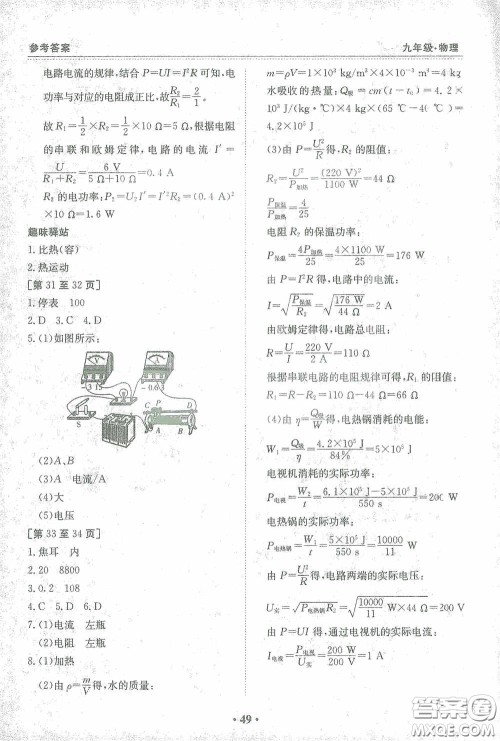 参考答案
九年级·物理
电路电流的规律,结合 P=UI=I²R 可知,电
功率与对应的电阻成正比,故R₂/R₁=2/1.
故 R₁=1/2×R₂=1/2×10 Ω=5 Ω,根据电阻
的串联和欧姆定律,电路的电流 I′=
U/(R₁+R₂)=6 V/(5 Ω+10 Ω)=0.4 A
R₂ 的电功率:P₂=U₂I′=I′²R₂=(0.4 A)²
×10 Ω=1.6 W
趣味驿站
1.比热(容)
2.热运动
[第 31 至 32 页]
1.停表 100
2.D 3.C 4.D
5.(1)如图所示:
V
A
3 15
-0.6
S
C P D
A B
(2)A、B
(3)A 电流/A
(4)大
(5)电压
[第 33 至 34 页]
1.焦耳 内
2.20 8800
3.0.2 108
4.C 5.D 6.D
7.(1)电流 左瓶
(2)电阻 左瓶
8.(1)加热
(2)由 ρ=m/V得,水的质量:
m=ρV=1×10³ kg/m³×4×10⁻³ m³=4 kg
水吸收的热量:Q吸=cm(t-t₀)=4.2×
10³ J/(kg·℃)×4 kg×(65 ℃-40 ℃)=
4.2×10⁵ J
(3)由 P=U²/R得,R₂ 的阻值:
R₂=U²/P加热=(220 V)²/1100 W=44 Ω
P保温/P加热=4/25
电阻 R₂ 的保温功率:
P保温=4P加热/25=4×1100 W/25=176 W
由 P=I²R 得,电路中的电流:
I=√(P保温/R₂)=√(176 W/44 Ω)=2 A
由欧姆定律得,电路总电阻:
R=U/I=220 V/2 A=110 Ω
根据串联电路的电阻规律可得,R₁ 的阻值:
R₁=R-R₂=110 Ω-44 Ω=66 Ω
(4)由 η=Q吸/W得,电热锅消耗的电能:
W₁=Q吸/η=4.2×10⁵ J/84%=5×10⁵ J
电视机消耗的实际功率:
P电视=W₂/t=(6.1×10⁵ J-5×10⁵ J)/550 s=200 W
电热锅的实际功率:
P电热锅=W₁/t=5×10⁵ J/550 s=10000/11 W
由 P=U²/R得,电路两端的实际电压:
U实=√(P电热锅R₂)=√(10000/11 W×44 Ω)=200 V
由 P=UI 得,通过电视机的实际电流:
I电视=P电视/U实=200 W/200 V=1 A
· 49 ·
答案圈
MXQE.COM